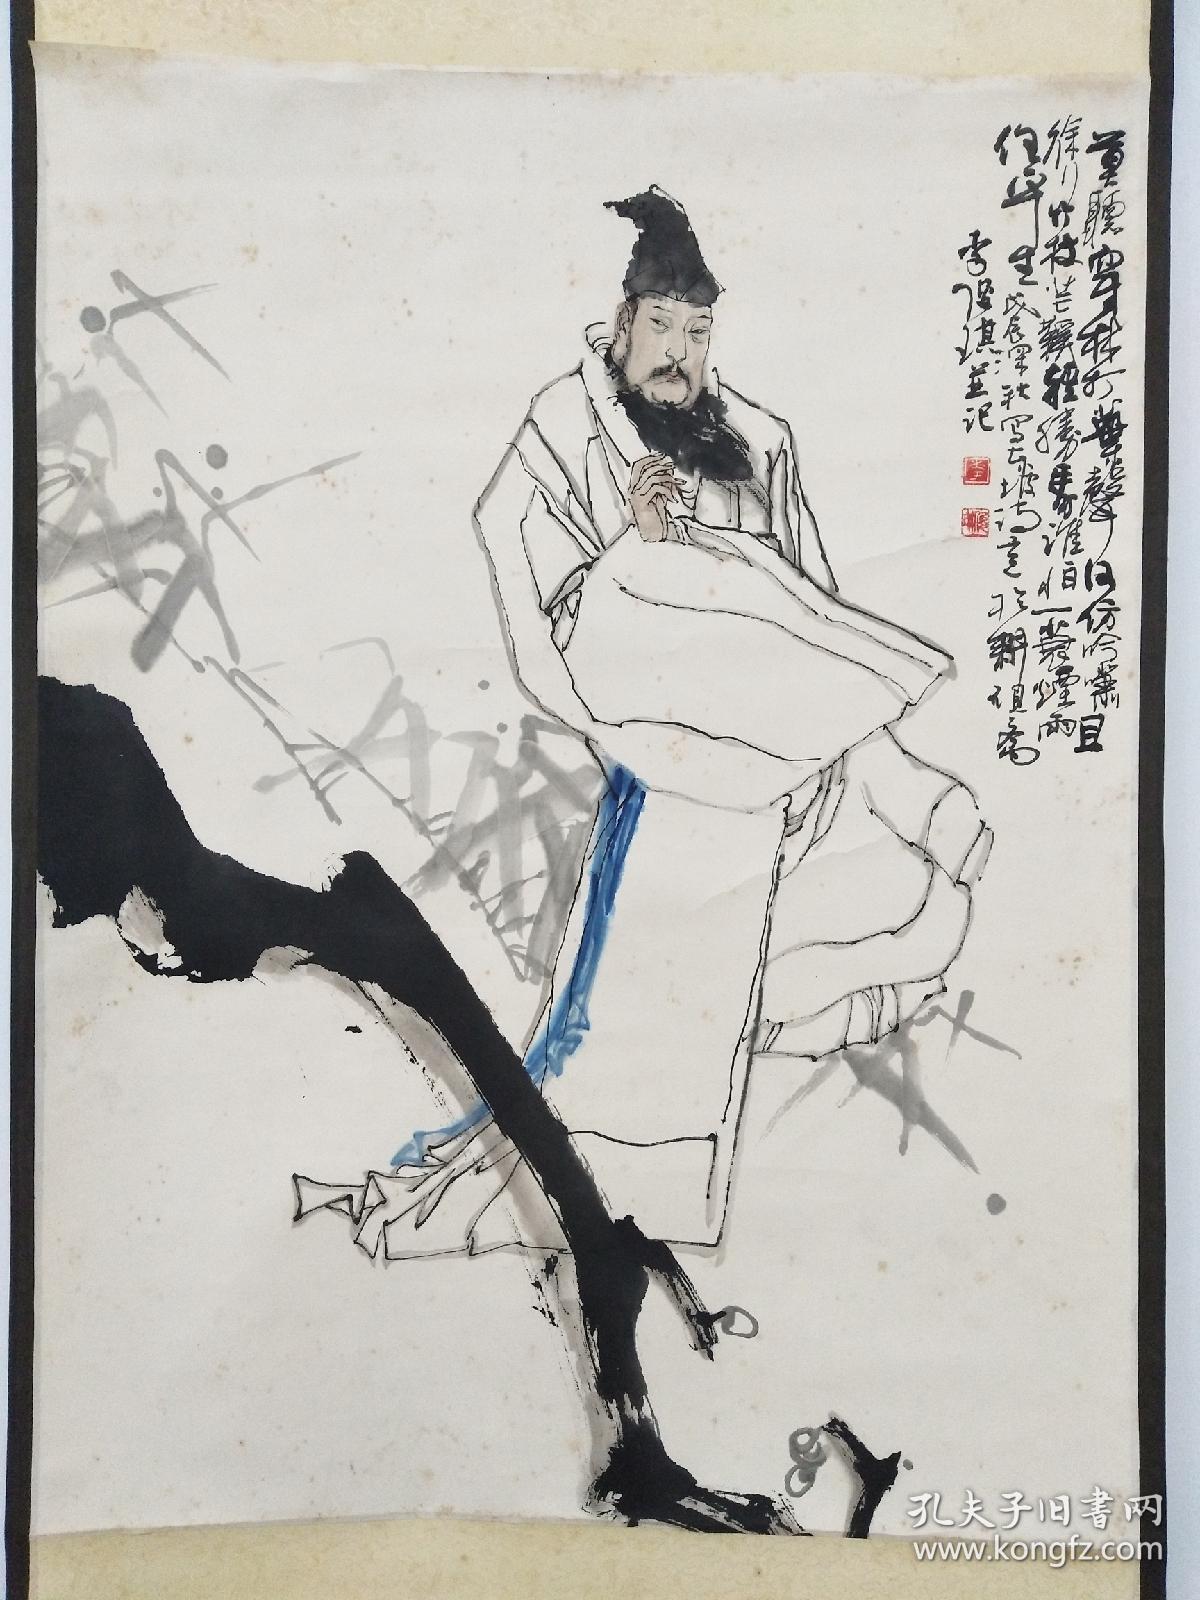 莫聽穿林打葉聲何仿吟嘯且
徐行竹枝芒鞋輕勝馬誰怕一蓑煙雨
任平生 戊辰深秋寫東坡詩意於耕硯齋
李俊琪並记
孔夫子旧书网
www.kongfz.com